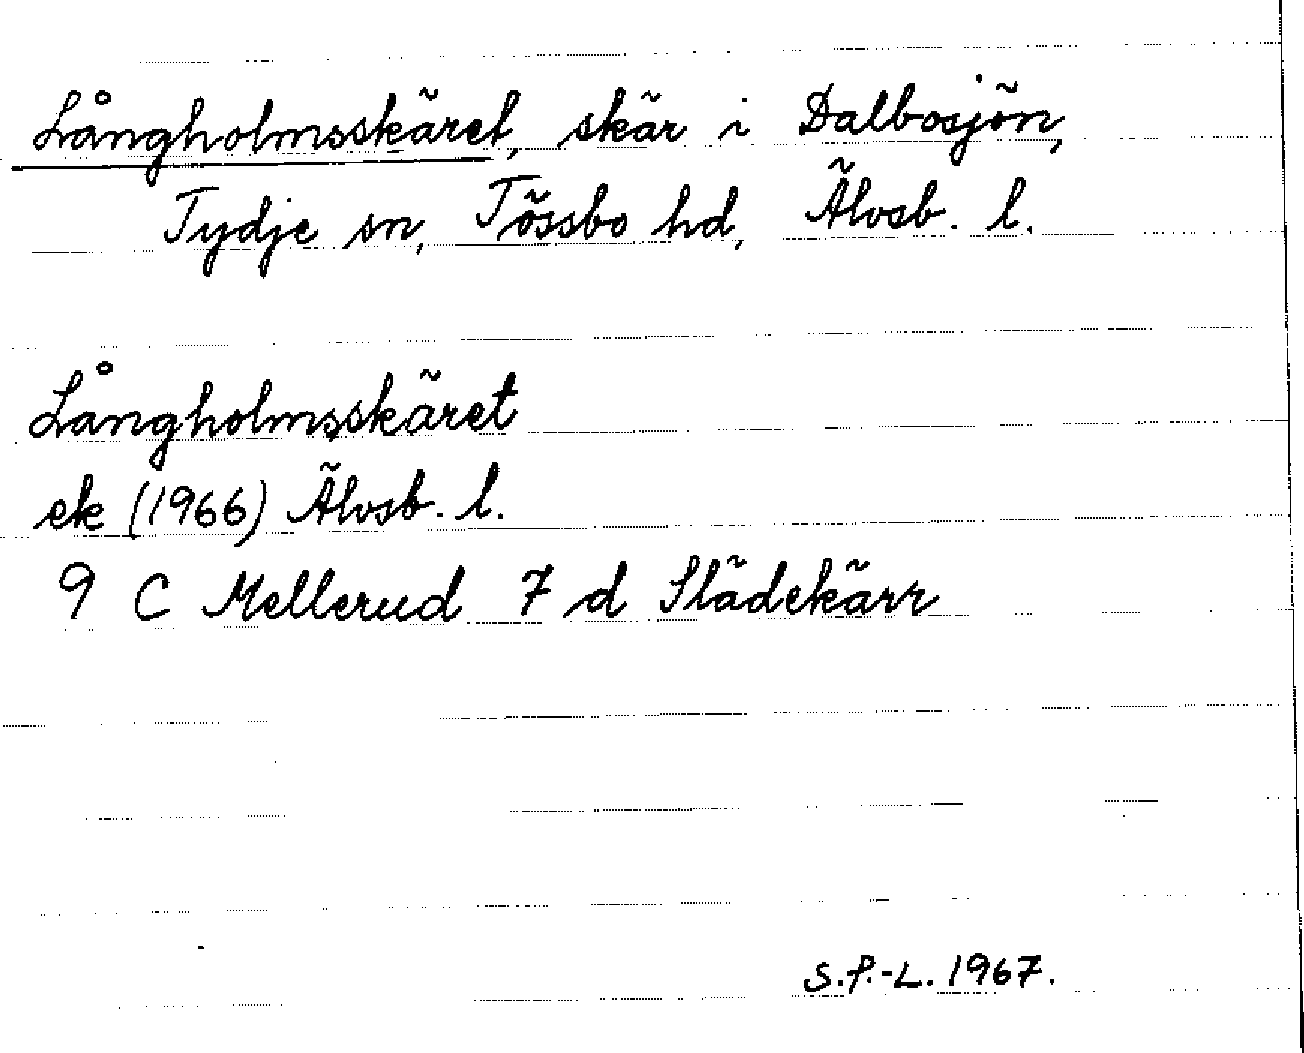 Långholmsskäret, skär i Dalbosjön,
Tydje sn, Tössbo hd, Älvsb. l.
Långholmsskäret
ek (1966) Älvsb. l.
9 C Mellerud 7 d Slädekärr
S.P.-L. 1967.